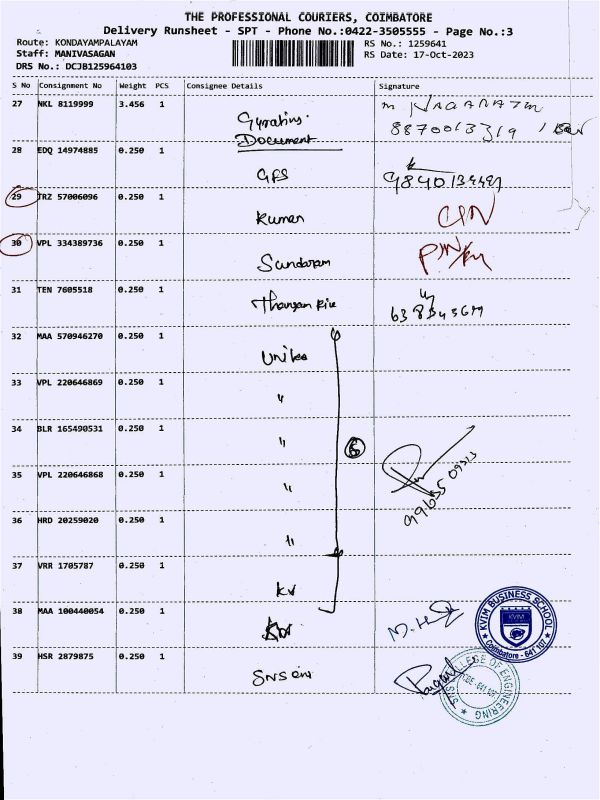 THE PROFESSIONAL COURIERS, COIMBATORE
Delivery Runsheet - SPT - Phone No.:0422-3505555 - Page No.:3
Route: KONDAYAMPALAYAM
RS No.: 1259641
Staff: MANIVASAGAN
RS Date: 17-Oct-2023
DRS No.: DCJB125964103
S No Consignment No Weight PCS Consignee Details Signature
27 NKL 8119999 3.456 1
Document
28 EDQ 14974885 0.250 1
GFS
29 TRZ 57006096 0.250 1
Kumar
30 VPL 334389736 0.250 1
Sundaram
31 TEN 7605518 0.250 1
32 MAA 570946270 0.250 1
33 VPL 220646869 0.250 1
"
34 BLR 165490531 0.250 1
"
35 VPL 220646868 0.250 1
"
36 HRD 20259020 0.250 1
"
37 VRR 1705787 0.250 1
KV
38 MAA 100440054 0.250 1
KVIM BUSINESS SCHOOL
Coimbatore - 641 107
39 HSR 2879875 0.250 1
COLLEGE OF ENGINEERING